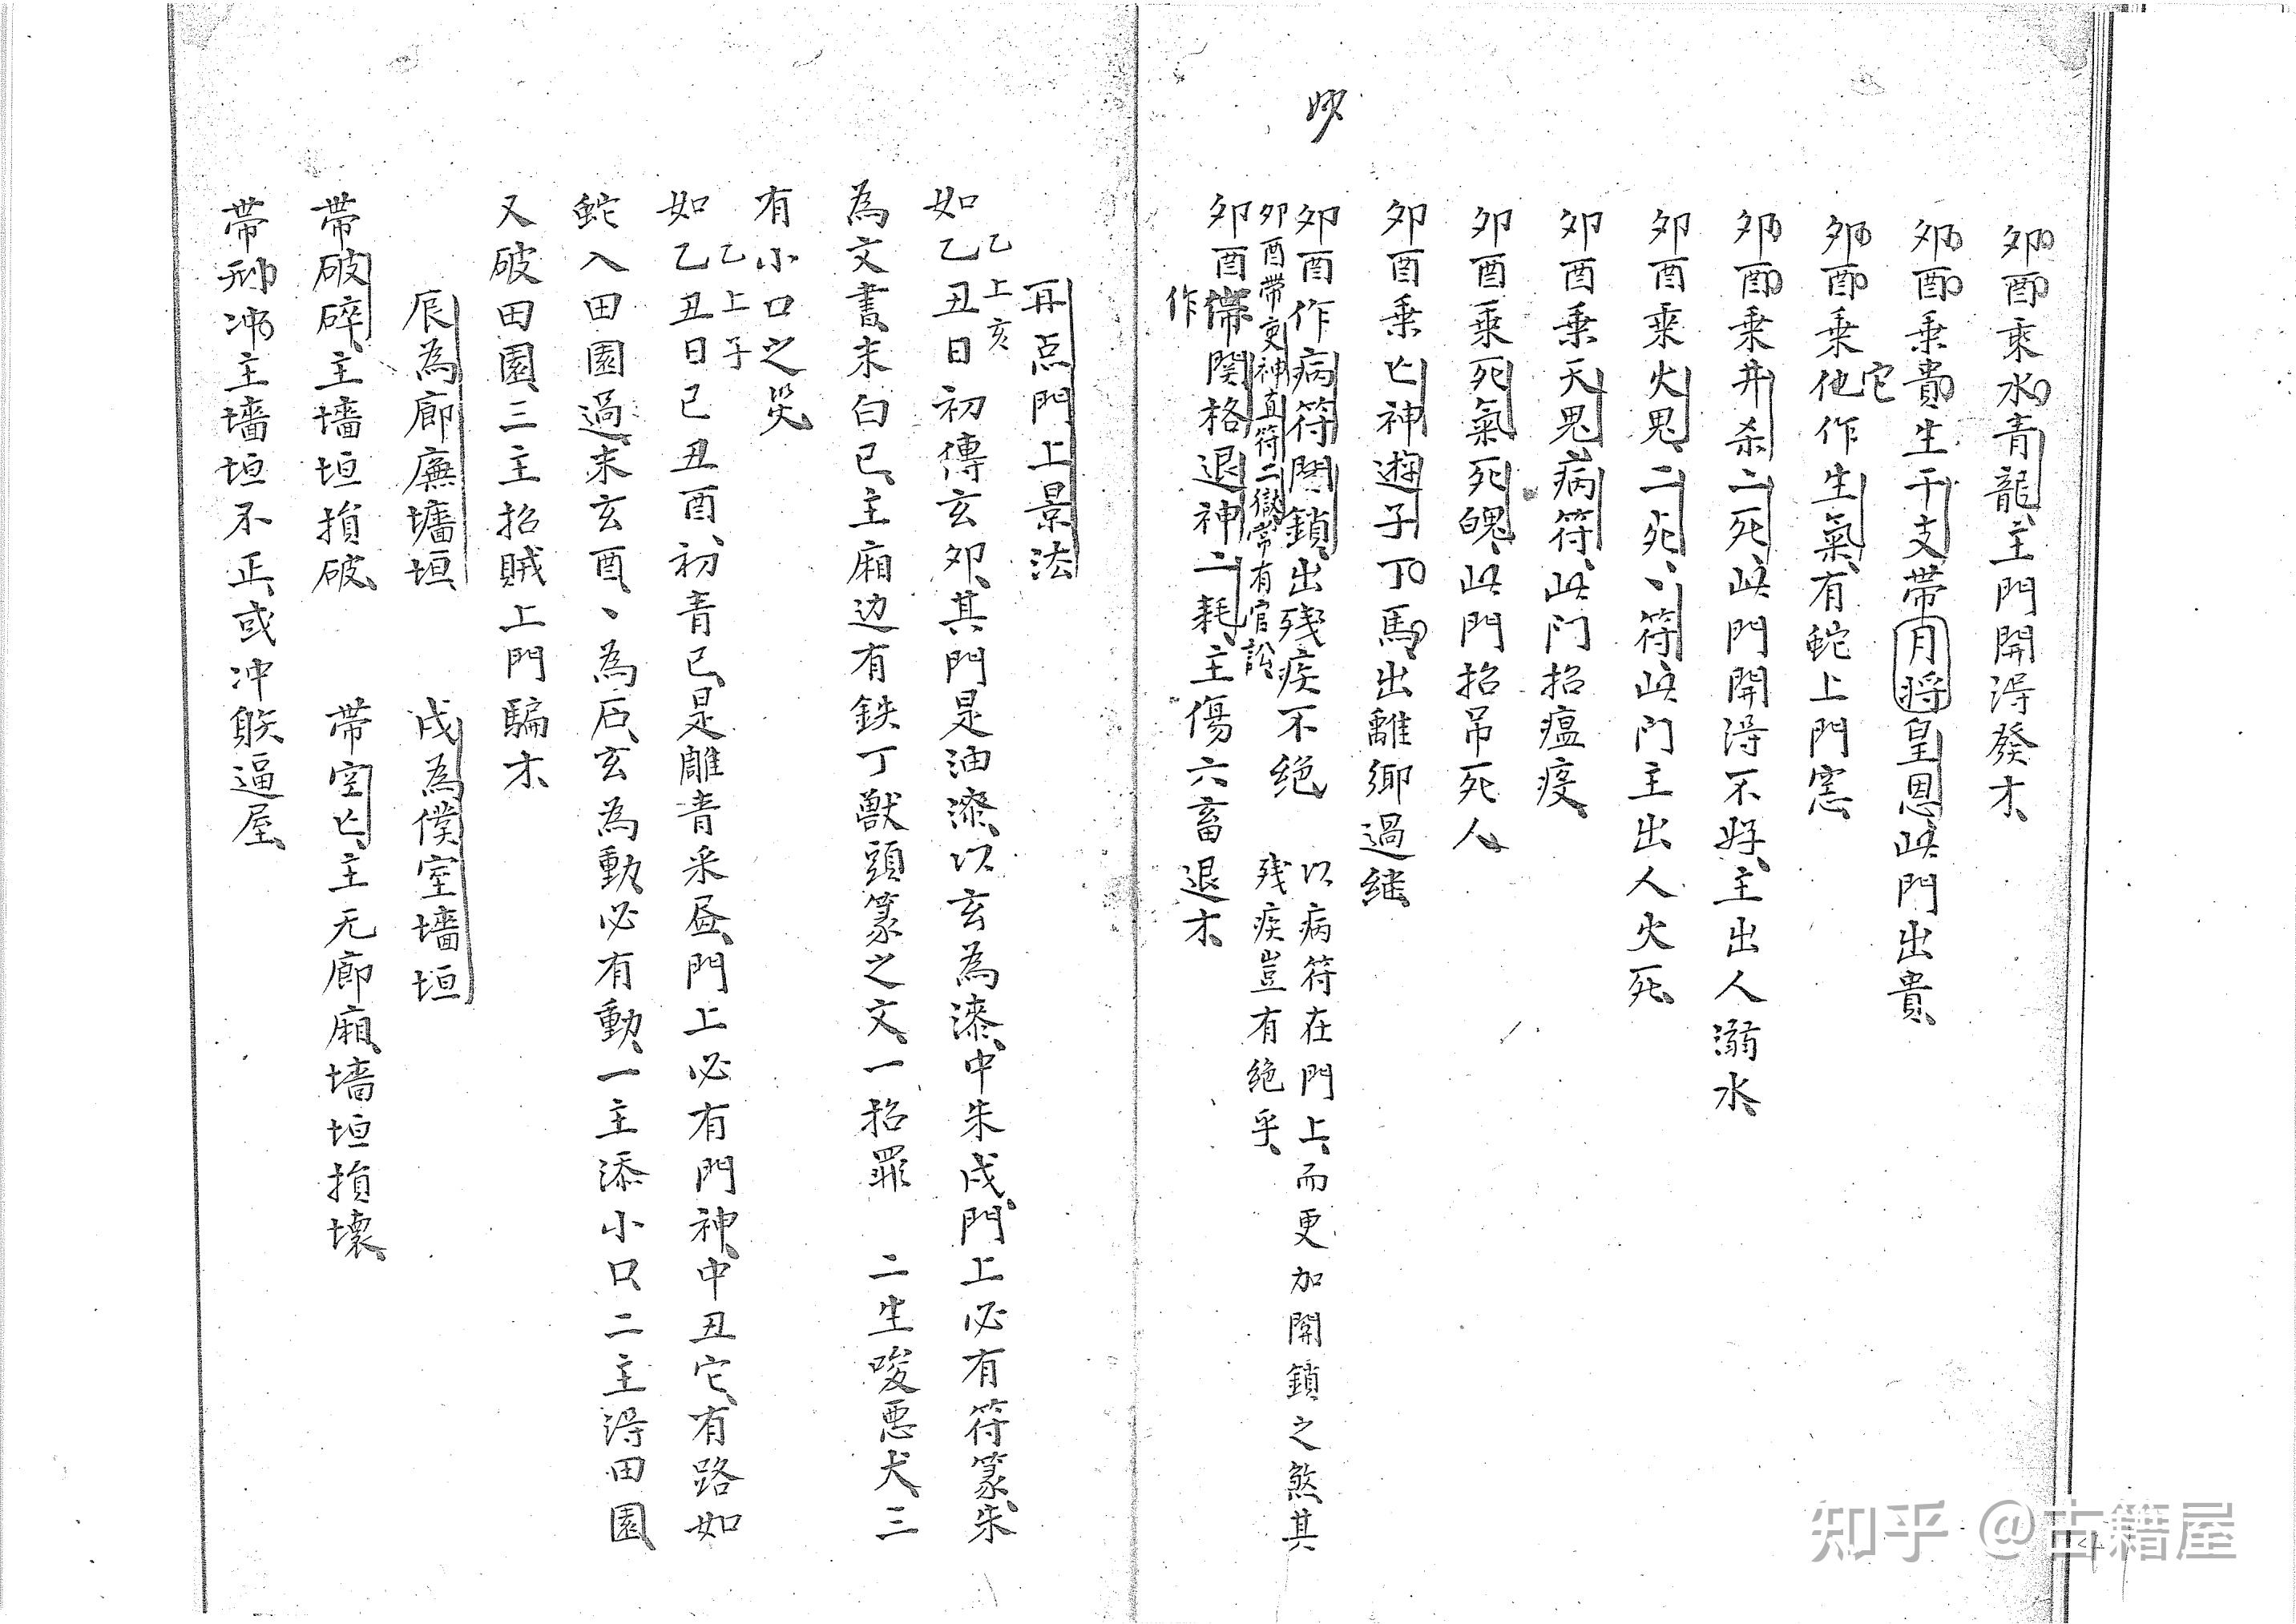 卯酉乘水青龍、主門開淂發才、
卯酉乘貴生干支、帶月將皇恩、此門出貴、
卯酉乘他作生氣、有蛇上門窓、
它
卯酉乘井杀二死、此門開淂不好、主出人溺水、
卯酉乘火鬼、二死、丶符此门主出人火死、
卯酉乘天鬼病符、此门招瘟疫、
卯酉乘死氣死魄、此門招吊死人、
卯酉乘亡神遊子丁馬、出離鄉過継、
妙
卯酉作病符関鎖、出残疾不绝
以病符在門上、而更加関鎖之煞其
残疾豈有绝乎、
卯酉帶支神直符二獄常有官訟
卯酉帶関格退神二耗、主傷六畜退才、
作
再点門上景法
乙上亥
如乙丑日初傳玄卯、其門是油漆、以玄為漆、中朱戌、門上必有符篆、朱
為文書、末白巳、主廂边有鉄丁獸頭篆之文、一招罪 二生唆惡犬、三
有小口之災
乙上子
如乙丑日巳丑酉、初青巳、是雕青采昼、門上必有門神、中丑它、有路如
蛇入田園過、末玄酉、丶為后、玄為動、必有動、一主添小口二主淂田園、
又破田園、三主招賊上門騙才
辰為廊廡墻垣、 戌為僕室墻垣
帶破碎、主墻垣損破、 帶空亡、主无廊廂、墻垣損壞、
帶刑冲主墻垣不正、或冲射逼屋、
知乎 @古籍屋